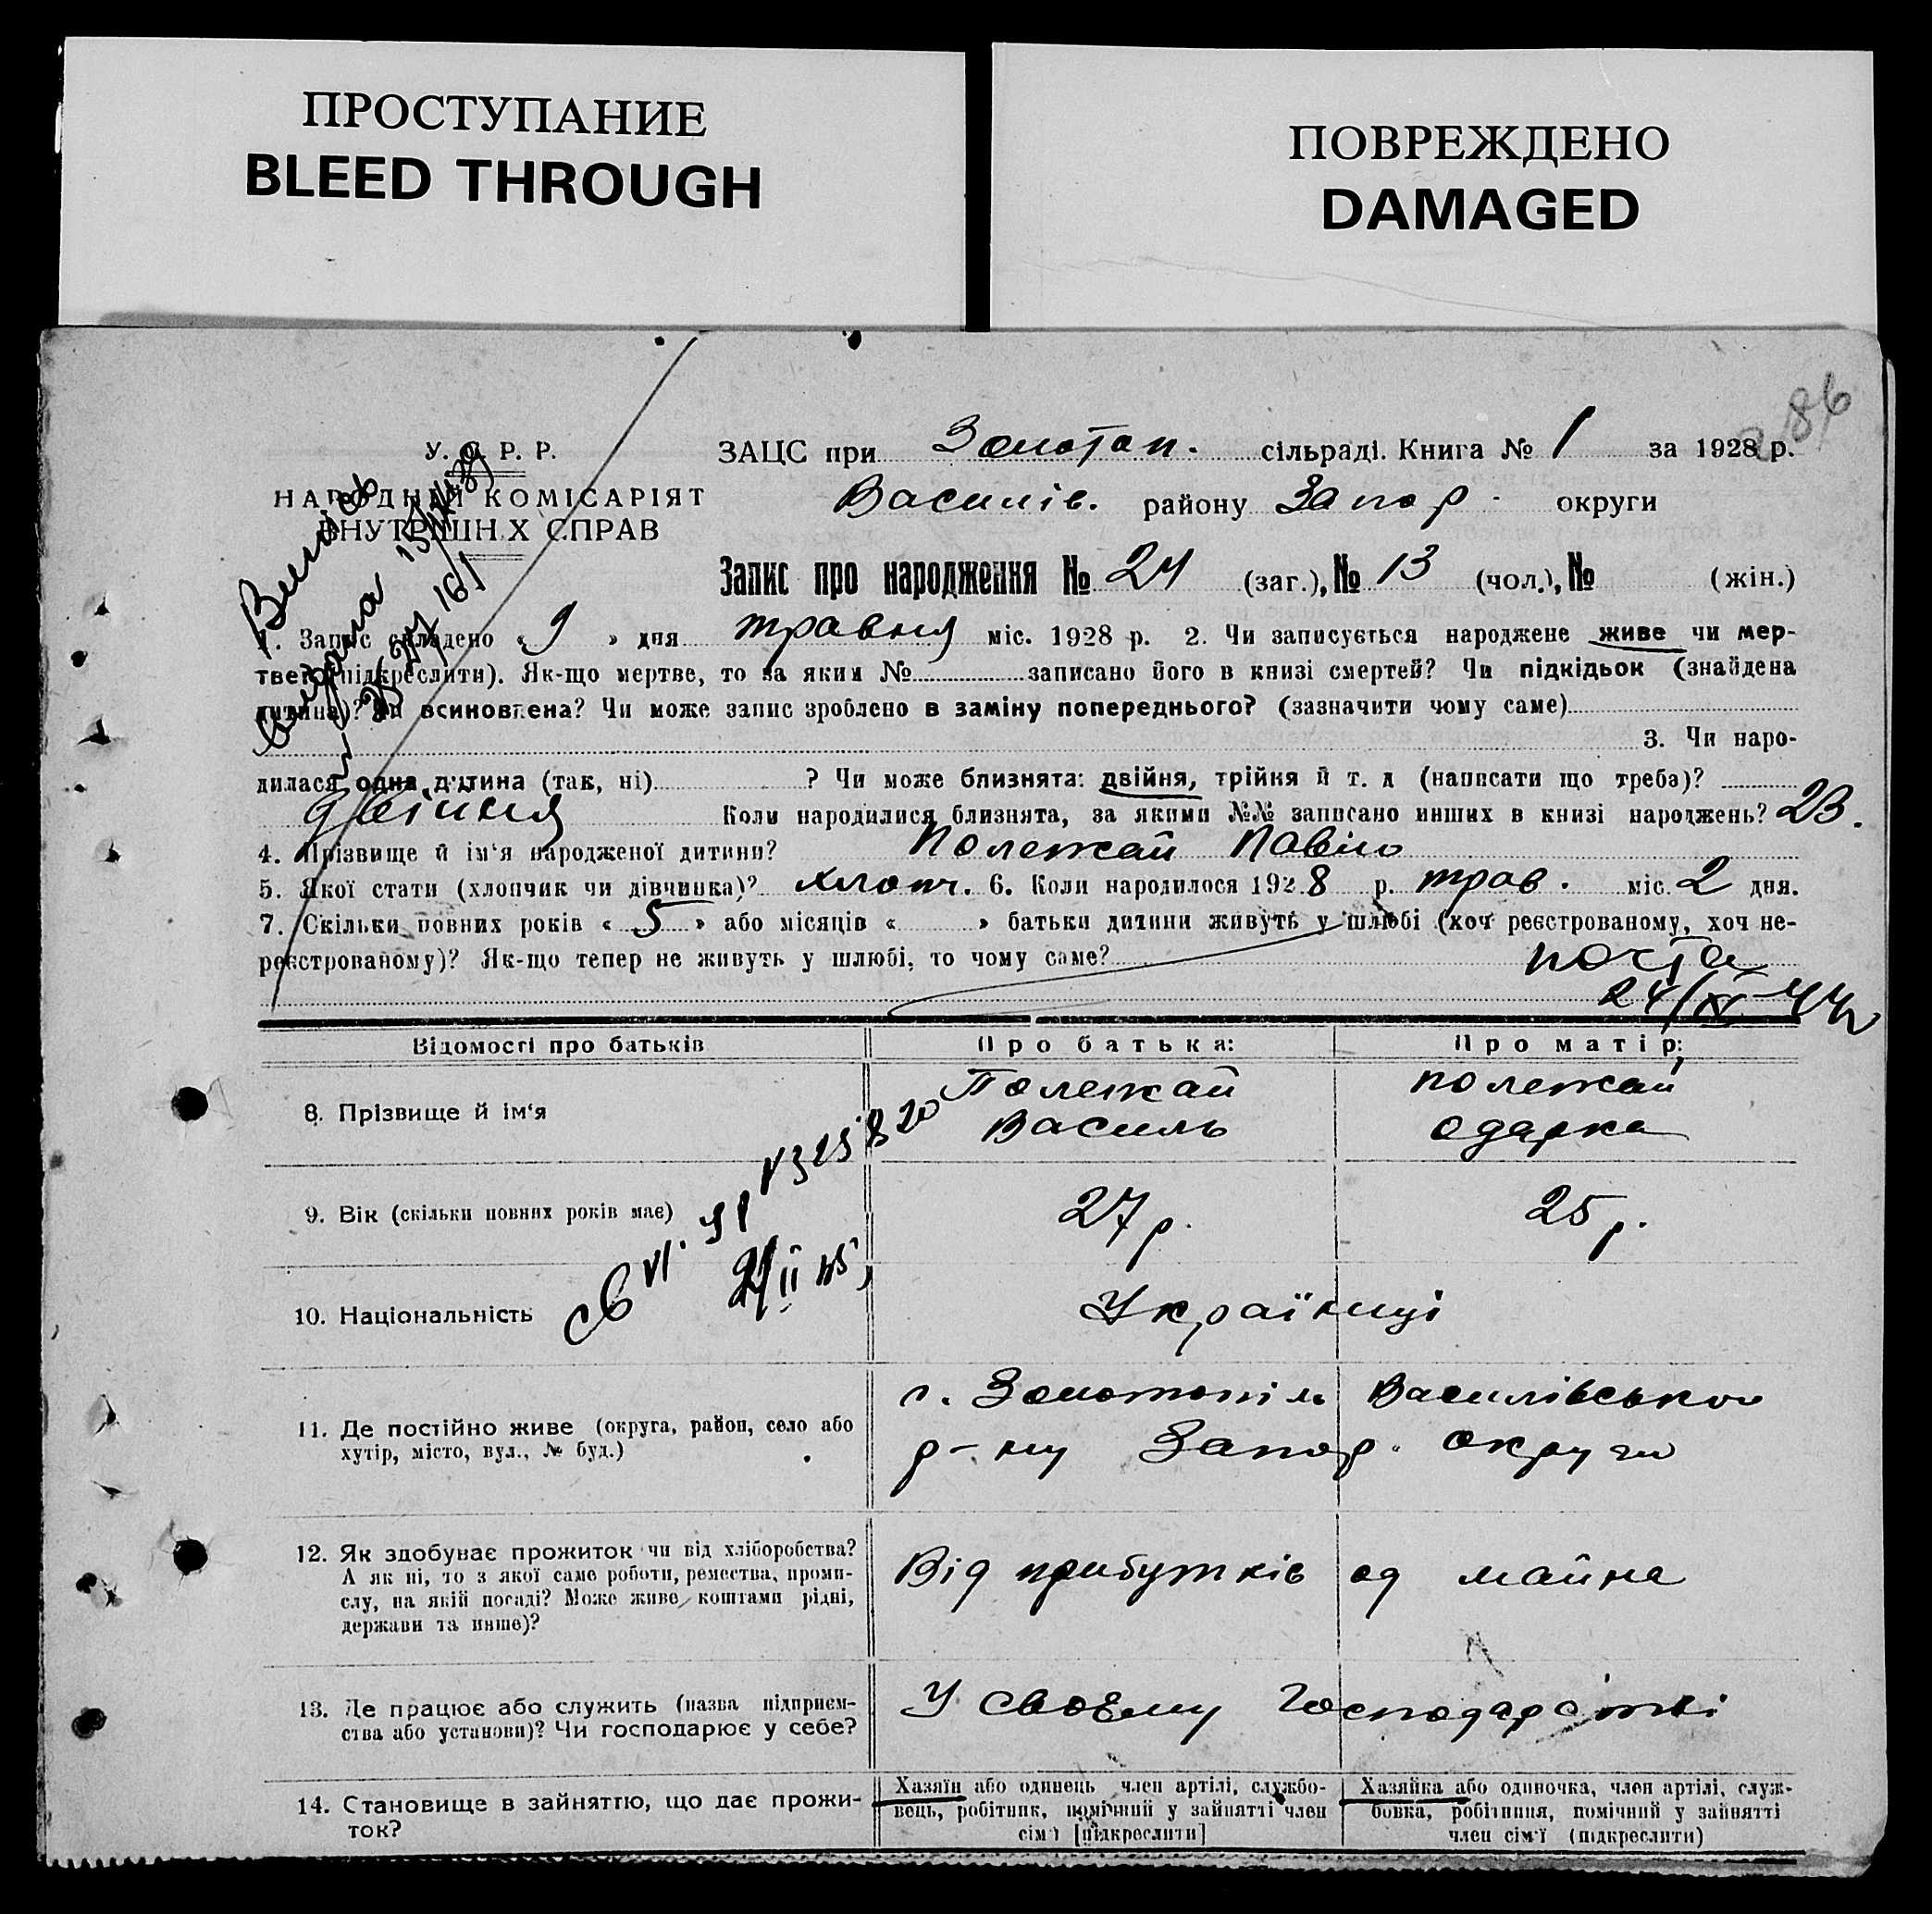 ПРОСТУПАНИЕ
BLEED THROUGH
ПОВРЕЖДЕНО
DAMAGED
86
У. С. Р. Р.
НАРОДНІЙ КОМІСАРІЯТ
ВНУТРІШН.Х СПРАВ
ЗАЦС при Золотоп. сільраді. Книга № 1 за 1928 р.
Василів. району Запор. округи
Запис про народження № 24 (заг.), № 13 (чол.), № (жін.)
1. Запис складено « 9 » дня травня міс. 1928 р. 2. Чи записується народжене живе чи мер-
тве? (підкреслити). Як-що мертве, то за яким № записано його в книзі смертей? Чи підкідьок (знайдена
дитина)? Чи всиновлена? Чи може запис зроблено в заміну попереднього? (зазначити чому саме)
3. Чи наро-
дилася одна дитина (так, ні) ? Чи може близнята: двійня, трійня й т. д (написати що треба)?
двійня Коли народилися близнята, за якими №№ записано инших в книзі народжень? 23.
4. Прізвище й ім‘я народженої дитини? Полежай Павло
5. Якої стати (хлопчик чи дівчинка)? хлопч. 6. Коли народилося 1928 р. трав. міс. 2 дня.
7. Скільки повних років « 5 » або місяців « » батьки дитини живуть у шлюбі (хоч реєстрованому, хоч не-
реєстрованому)? Як-що тепер не живуть у шлюбі, то чому саме?
24/XI-44
Відомості про батьків
Про батька:
Про матір:
8. Прізвище й ім‘я
Полежай
Василь
полежай
одарка
9. Вік (скільки повних років має)
27 р.
25 р.
10. Національність
Українці
11. Де постійно живе (округа, район, село або
хутір, місто, вул., № буд.)
с. Золотопіль Василівського
р-ну Запор. округи
12. Як здобуває прожиток чи від хліборобства?
А як ні, то з якої саме роботи, ремества, проми-
слу, на якій посаді? Може живе коштами рідні,
держави та инше)?
Від прибутків од майна
13. Де працює або служить (назва підприєм-
ства або установи)? Чи господарює у себе?
У своєму господарстві
14. Становище в зайняттю, що дає прожи-
ток?
Хазяїн або одинець член артілі, службо-
вець, робітник, помічний у зайнятті член
сім‘ї [підкреслити]
Хазяйка або одиночка, член артілі, служ-
бовка, робітниця, помічний у зайнятті
член сім‘ї (підкреслити)